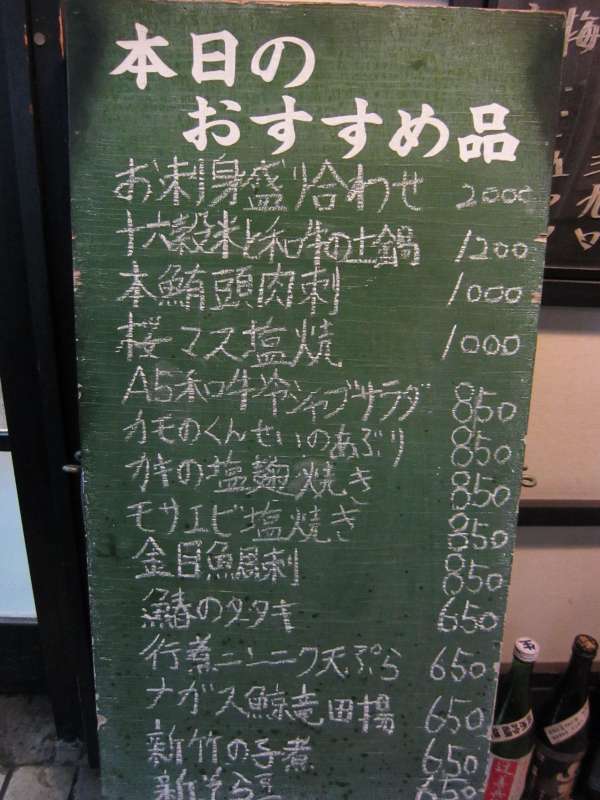 本日の
おすすめ品
お刺身盛り合わせ 2000
十六穀米と和牛の土鍋 1200
本鮪頭肉刺 1000
桜マス塩焼 1000
A5和牛冷シャブサラダ 850
カモのくんせいのあぶり 850
カキの塩麹焼き 850
モサエビ塩焼き 850
金目鯛刺 850
鰆のタタキ 650
行煮ニンニク天ぷら 650
ナガス鯨竜田揚 650
新竹の子煮 650
新そら豆 650
梅